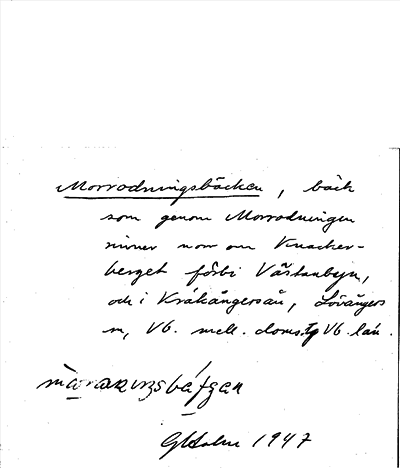 Morrodningsbäcken, bäck
som genom Morrodningen
rinner norr om Knacker-
berget förbi Västanbyn,
och i Kråkångersån, Lövångers
sn, Vb. mell. doms. Vb. län.
1947